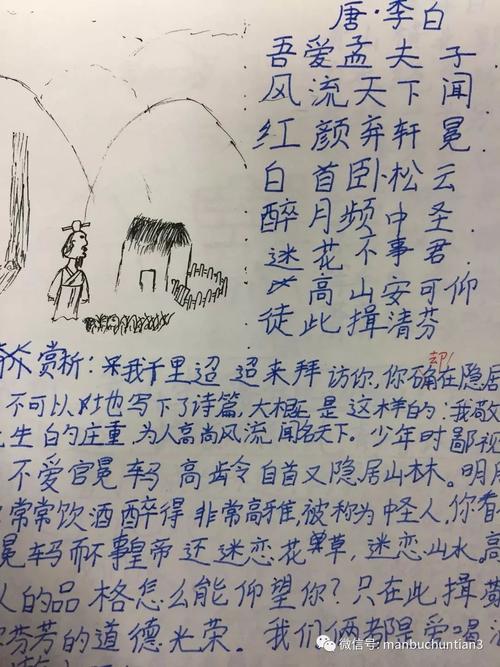 唐·李白
吾爱孟夫子
风流天下闻
红颜弃轩冕
白首卧松云
醉月频中圣
迷花不事君
高山安可仰
徒此揖清芬
赏析:呆我千里迢迢来拜访你,你确在隐居
却!
不可以,也写下了诗篇,大概是这样的:我敬
生白的庄重,为人高尚风流闻名天下。少年时鄙视
不爱官冕车马高龄白首又隐居山林。明月
常常饮酒醉得非常高雅,被称为中圣人,你看
冕车马而不事皇帝还迷恋花草,迷恋山水。高
人的品格怎么能仰望你?只在此揖
芬芳的道德光荣。我们俩都是爱喝
微信号:manbuchuntian3